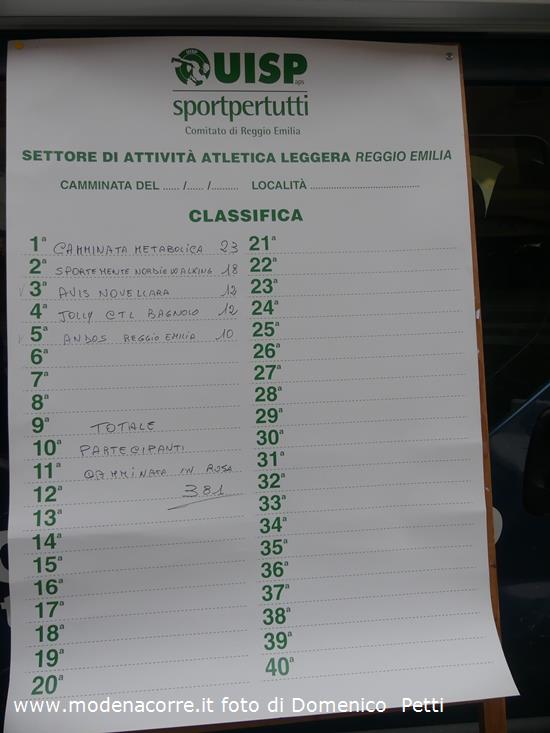 UISP
aps
sportpertutti
Comitato di Reggio Emilia
SETTORE DI ATTIVITÀ ATLETICA LEGGERA REGGIO EMILIA
CAMMINATA DEL ...... /...... /.......... LOCALITÀ ........................................
CLASSIFICA
1ª CAMMINATA METABOLICA 23
2ª SPORTEMENTE NORDIC WALKING 18
3ª AVIS NOVELLARA 12
4ª JOLLY CTL BAGNOLO 12
5ª ANDOS REGGIO EMILIA 10
6ª
7ª
8ª
9ª TOTALE
10ª PARTECIPANTI
11ª CAMMINATA IN ROSA
12ª 381
13ª
14ª
15ª
16ª
17ª
18ª
19ª
20ª
21ª
22ª
23ª
24ª
25ª
26ª
27ª
28ª
29ª
30ª
31ª
32ª
33ª
34ª
35ª
36ª
37ª
38ª
39ª
40ª
www.modenacorre.it foto di Domenico Petti